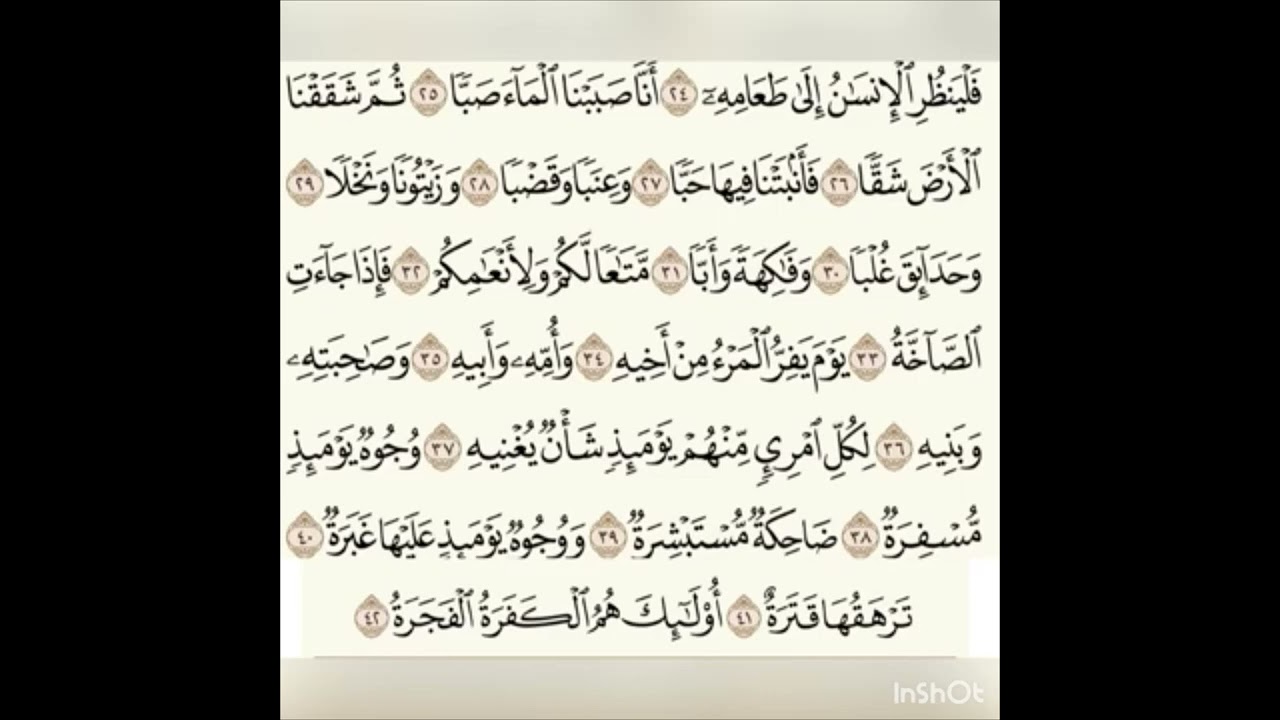 فَلْيَنظُرِ ٱلْإِنسَٰنُ إِلَىٰ طَعَامِهِۦٓ ٢٤ أَنَّا صَبَبْنَا ٱلْمَآءَ صَبًّا ٢٥ ثُمَّ شَقَقْنَا
ٱلْأَرْضَ شَقًّا ٢٦ فَأَنۢبَتْنَا فِيهَا حَبًّا ٢٧ وَعِنَبًا وَقَضْبًا ٢٨ وَزَيْتُونًا وَنَخْلًا ٢٩
وَحَدَآئِقَ غُلْبًا ٣٠ وَفَٰكِهَةً وَأَبًّا ٣١ مَّتَٰعًا لَّكُمْ وَلِأَنْعَٰمِكُمْ ٣٢ فَإِذَا جَآءَتِ
ٱلصَّآخَّةُ ٣٣ يَوْمَ يَفِرُّ ٱلْمَرْءُ مِنْ أَخِيهِ ٣٤ وَأُمِّهِۦ وَأَبِيهِ ٣٥ وَصَٰحِبَتِهِۦ
وَبَنِيهِ ٣٦ لِكُلِّ ٱمْرِئٍ مِّنْهُمْ يَوْمَئِذٍ شَأْنٌ يُغْنِيهِ ٣٧ وُجُوهٌ يَوْمَئِذٍ
مُّسْفِرَةٌ ٣٨ ضَاحِكَةٌ مُّسْتَبْشِرَةٌ ٣٩ وَوُجُوهٌ يَوْمَئِذٍ عَلَيْهَا غَبَرَةٌ ٤٠
تَرْهَقُهَا قَتَرَةٌ ٤١ أُو۟لَٰٓئِكَ هُمُ ٱلْكَفَرَةُ ٱلْفَجَرَةُ ٤٢
InShOt